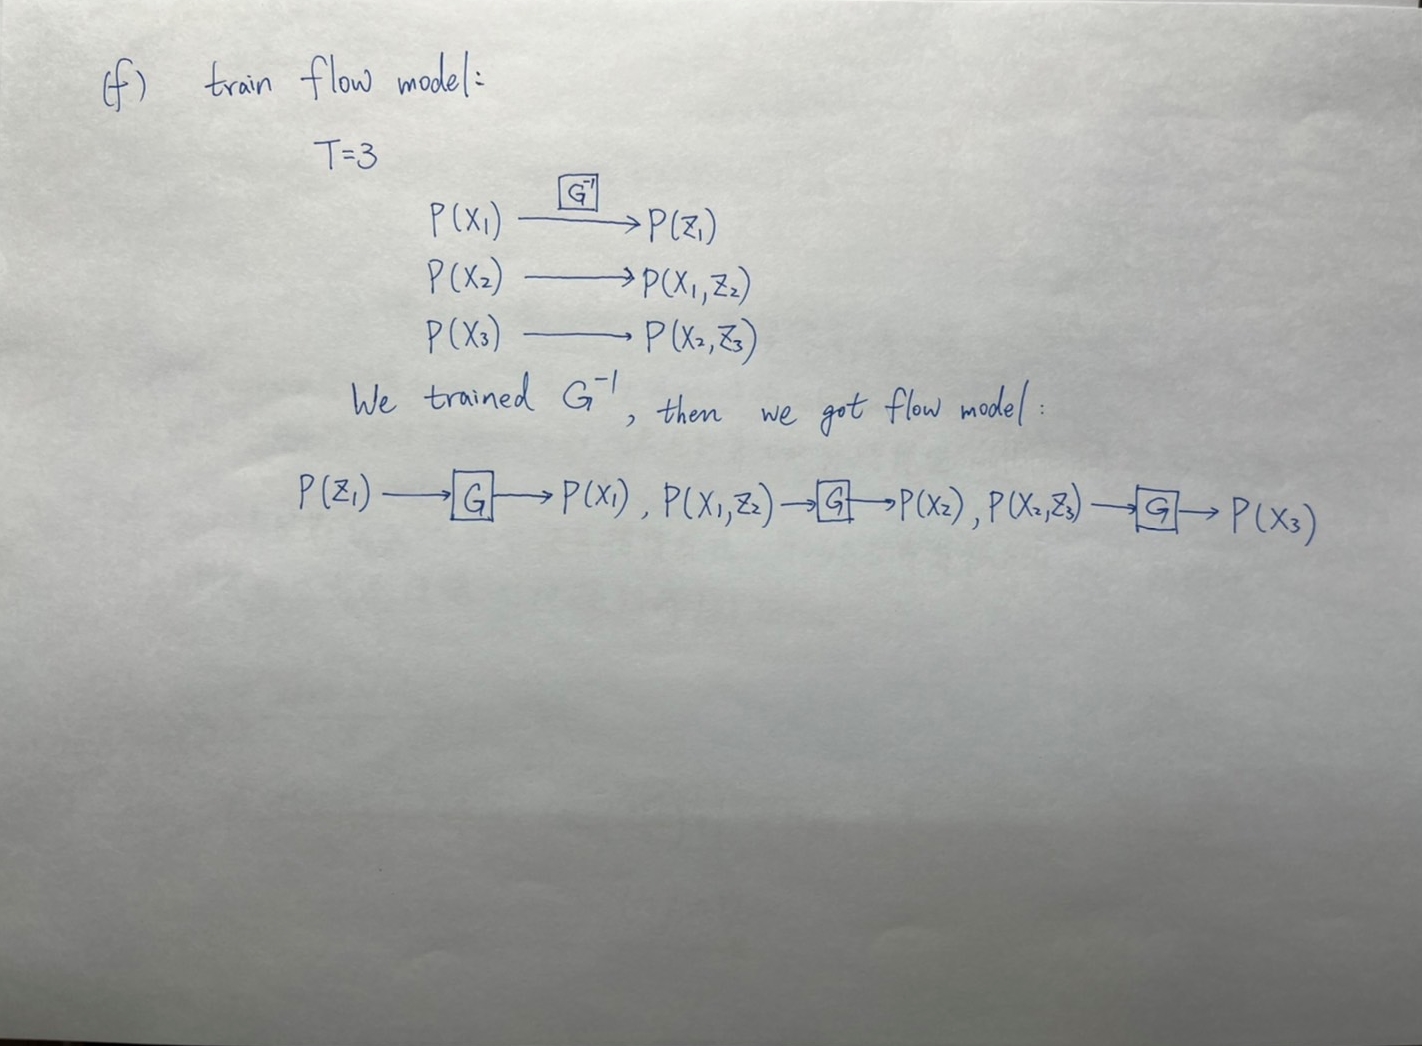 (f) train flow model:
T=3
G⁻¹
P(X₁) → P(Z₁)
P(X₂) → P(X₁,Z₂)
P(X₃) → P(X₂,Z₃)
We trained G⁻¹, then we got flow model:
P(Z₁) → G → P(X₁), P(X₁,Z₂) → G → P(X₂), P(X₂,Z₃) → G → P(X₃)